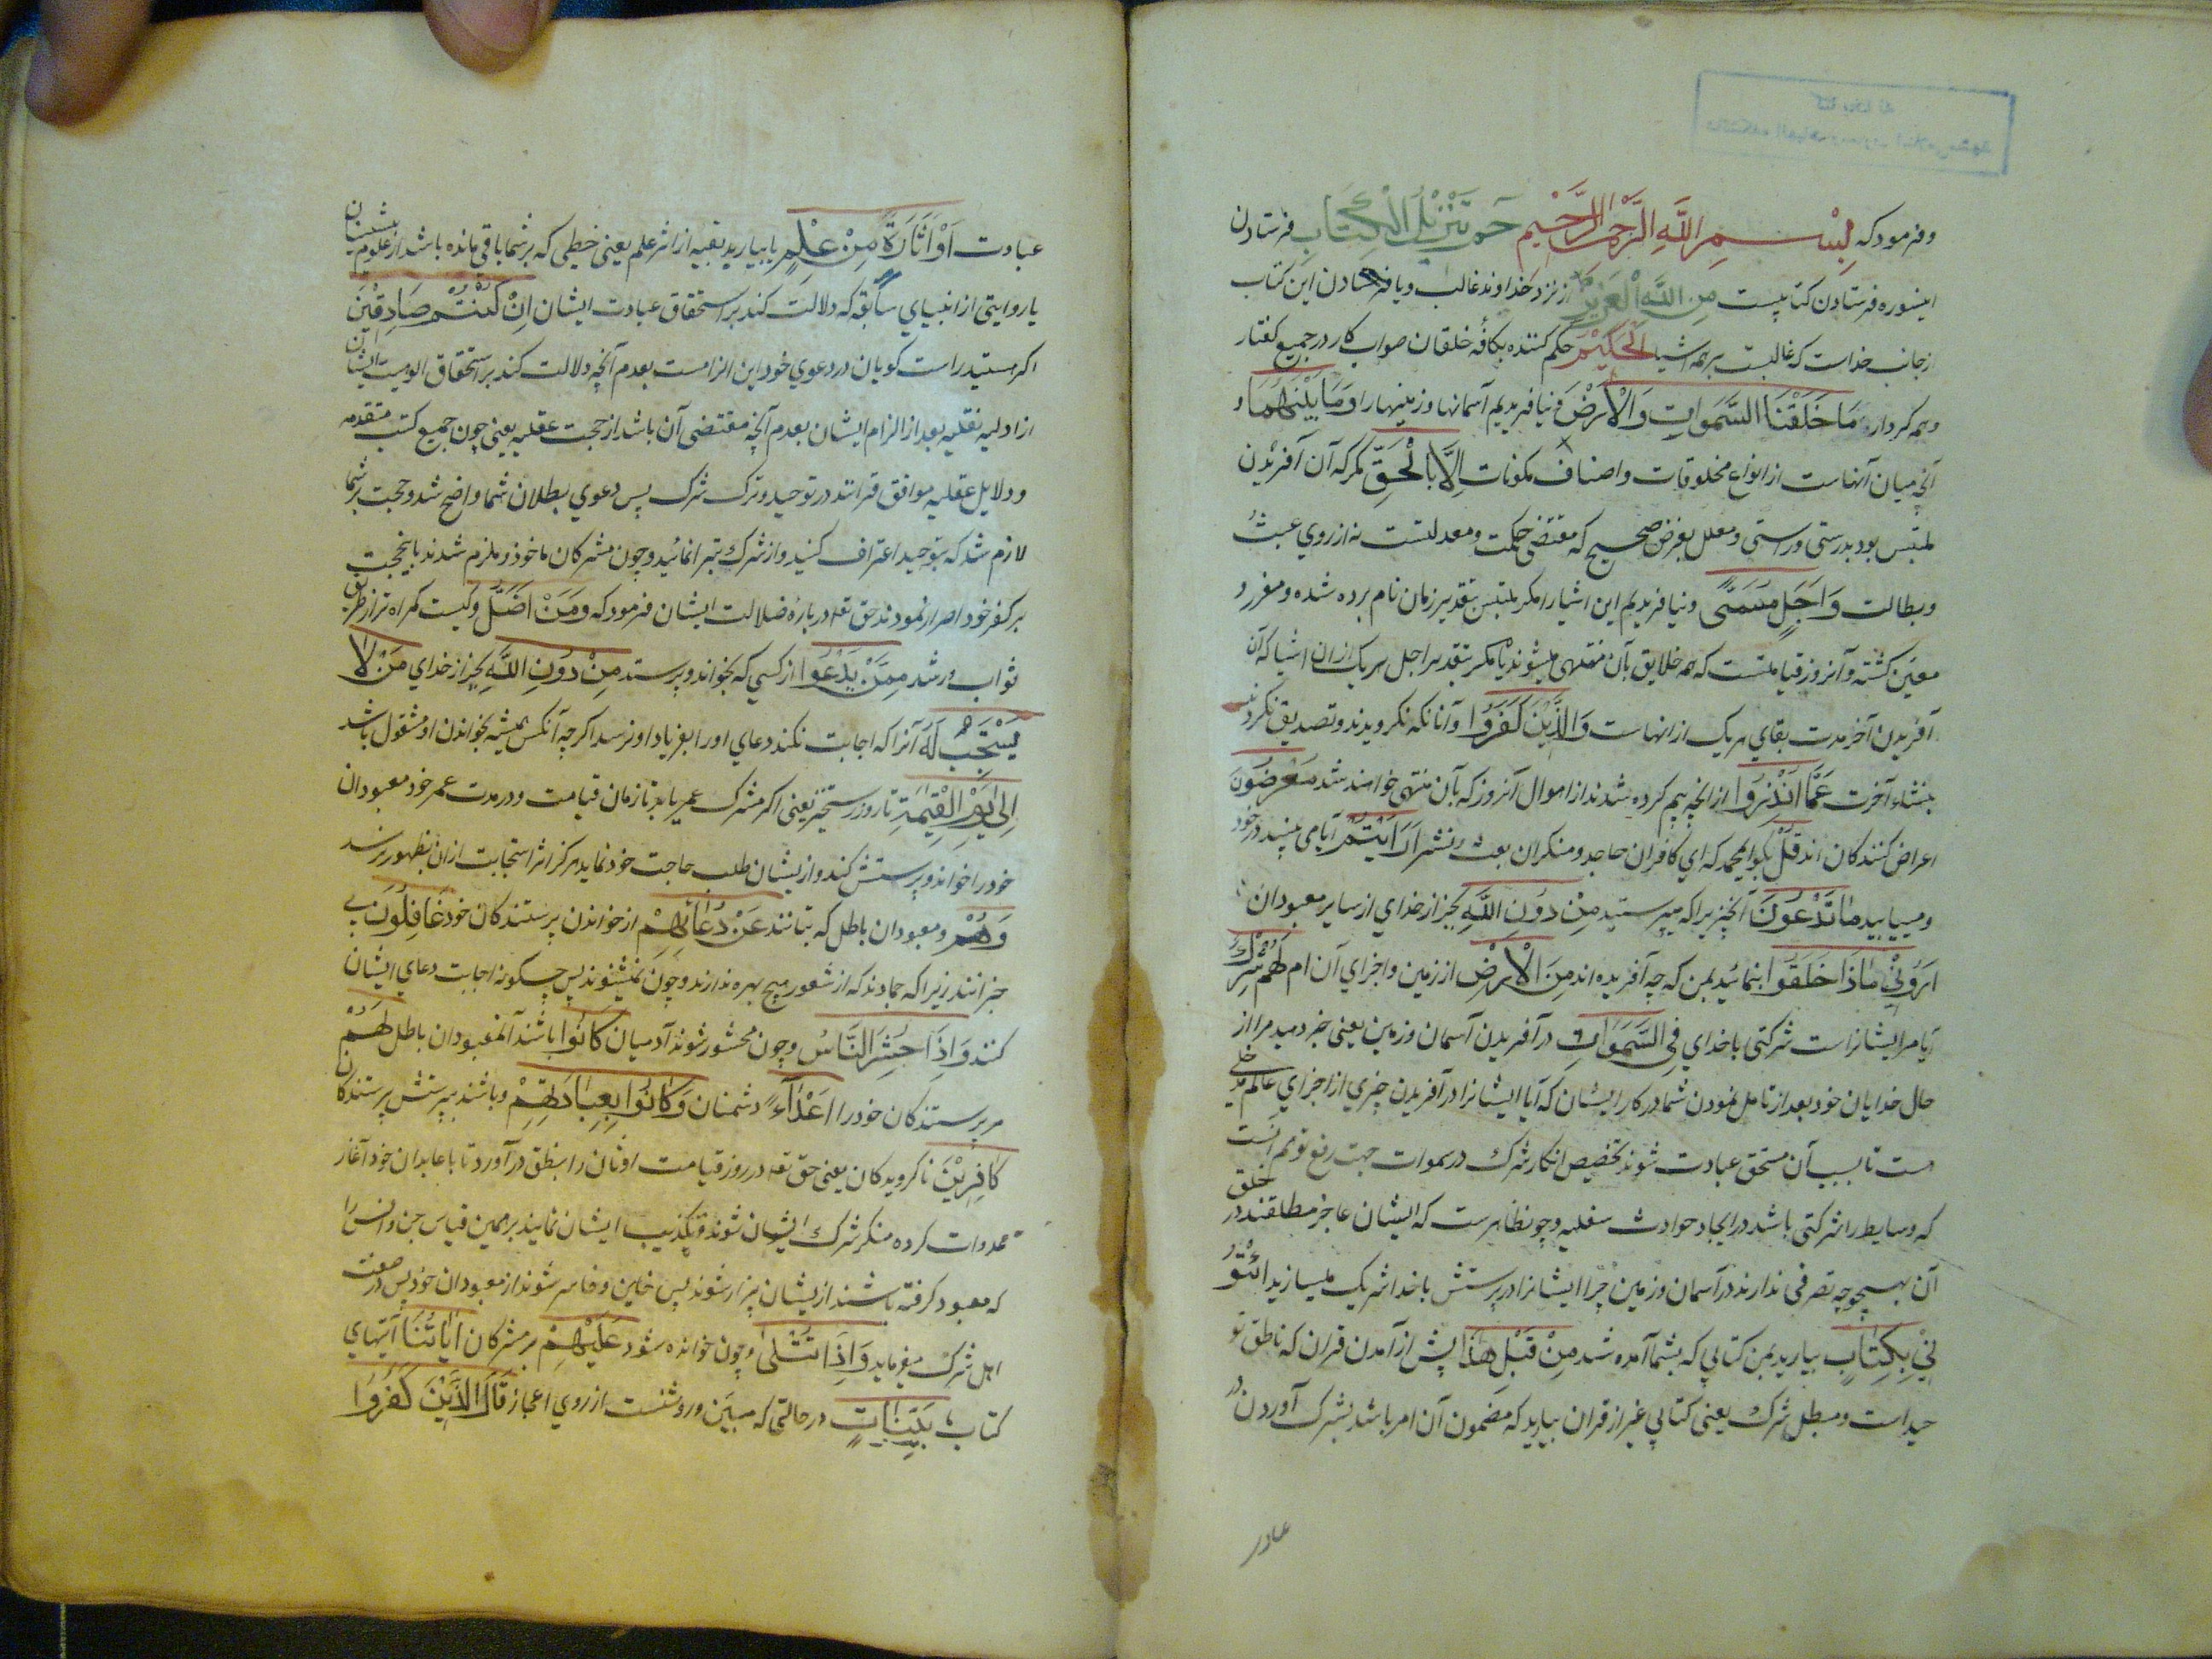 وفرمود که بِسْمِ اللَّهِ الرَّحْمنِ الرَّحِيْمِ حم تَنْزِيْلُ الْكِتَابِ فرستادن
اینسوره فرستادن کتابیست مِنَ اللَّهِ الْعَزِيزِ از نزد خداوند غالب ویا فرستادن این کتاب
از جانب خداست که غالبست بر همه اشیا الْحَكِيْمِ حکم کننده بکافّه خلقان صواب کار در جمیع کفتار
وهم کردار مَا خَلَقْنَا السَّمَوَاتِ وَالْاَرْضَ نیافریدیم آسمانها وزمینها را وَمَا بَيْنَهُمَا و
آنچه میان آنهاست از انواع مخلوقات واصناف مکونات اِلَّا بِالْحَقِّ مکر که آن آفریدن
ملتبس بود بدرستی وراستی ومعلل بغرض صحیح که مقتضی حکمت ومعدلتست نه از روی عبث
وبطالت وَاَجَلٍ مُسَمًّى ونیافریدیم این اشیا را مکر ملتبس بتقدیر زمان نام برده شده ومقرر و
معین کشته وآنروز قیامتست که همه خلایق بآن منتهی میشوند یا مکر بتقدیر اجل هریک از ان اشیا که آن
آفریدن آخر مدت بقای هریک از انهاست وَالَّذِيْنَ كَفَرُوا وآنانکه نکرویدند وتصدیق نکردند
بنشاء آخرت عَمَّا اُنْذِرُوا از انچه بیم کرده شدند از اهوال آنروز که بآن منتهی خواهند شد مُعْرِضُوْنَ
اعراض کنندکان اند قُلْ بکو ای محمد که ای کافران جاحد ومنکران بعث ونشر اَرَاَيْتُمْ آیا می بینید در خود
ومییابید مَا تَدْعُوْنَ آنچیز یرا که میپرستید مِنْ دُوْنِ اللَّهِ بجز از خدای از سایر معبودان
اَرُوْنِيْ مَاذَا خَلَقُوا بنمائید بمن که چه آفریده اند مِنَ الْاَرْضِ از زمین واجزای آن اَمْ لَهُمْ شِرْكٌ
آیا مر ایشانراست شرکتی با خدای فِي السَّمَوَاتِ در آفریدن آسمان وزمین یعنی خبر دهید مرا از
حال خدایان خود بعد از تامل نمودن شما در کار ایشان که آیا ایشانرا در آفریدن چیزی از اجزای عالم مدخلی
هست تا بسبب آن مستحق عبادت شوند تخصیص انکار شرک در سموات جهت رفع توهم آنست
که وسایط را شرکتی باشد در ایجاد حوادث سفلیه وچو نظاهرست که ایشان عاجز مطلقند در خلق
آن بهیچوجه تصرفی ندارند در آسمان وزمین چرا ایشانرا در پرستش با خدا شریک میسازید ائْتُوْ
نِيْ بِكِتَابٍ بیارید بمن کتابی که بشما آمده شد مِنْ قَبْلِ هَذَا پیش از آمدن قران که ناطق تو
حیداست ومبطل شرک یعنی کتابی غیر از قران بیارید که مضمون آن امر باشد بشرک آوردن در
عبادت
عبادت اَوْ اَثَارَةٍ مِنْ عِلْمٍ یا بیارید بقیه از اثر علم یعنی خطی که بر شما باقی مانده باشد از علوم پیشینان
یا روایتی از انبیای سابقه که دلالت کند بر استحقاق عبادت ایشان اِنْ كُنْتُمْ صَادِقِيْنَ
اکر هستید راست کویان در دعوی خود این الزامست بعدم آنچه دلالت کند بر استحقاق الوهیت ایشان
از ادلیه نقلیه بعد از الزام ایشان بعدم آنچه مقتضی آن باشد از حجت عقلیه یعنی چون جمیع کتب متقدمه
ودلایل عقلیه موافق قرانند در توحید وترک شرک پس دعوی بطلان شما واضح شد وحجت بر شما
لازم شد که بتوحید اعتراف کنید واز شرک تبرا نمائید وچون مشرکان ماخوذ وملزم شدند باینحجت
بر کفر خود اصرار نمودند حق تعه در باره ضلالت ایشان فرمود که وَمَنْ اَضَلُّ وکیست کمراه تر از طریق
ثواب ورشد مِمَّنْ يَدْعُوا از کسی که بخواند وپرستد مِنْ دُوْنِ اللَّهِ بجز از خدای مَنْ لَا
يَسْتَجِيْبُ لَهُ آنرا که اجابت نکند دعای او را بفریاد او نرسد اکر چه آنکس همیشه بخواندن او مشغول باشد
اِلَى يَوْمِ الْقِيٰمَةِ تا روز رستخیز یعنی اکر مشرک عمر یابد تا زمان قیامت ودر مدت عمر خود معبودان
خود را خواند وپرستش کند واز یشان طلب حاجت خود نماید هرکز اثر استجابت از ان بظهور نرسد
وَهُمْ ومعبودان باطل که بتانند عَنْ دُعَائِهِمْ از خواندن پرستندکان خود غَافِلُوْنَ بی
خبرانند زیرا که جمادند که از شعور هیچ بهره ندارند وچون نمیشنوند پس چسکونه اجابت دعای ایشان
کنند وَاِذَا حُشِرَ النَّاسُ وچون محشور شوند آدمیان كَانُوا باشند آنمعبودان باطل لَهُمْ
مر پرستندکان خود را اَعْدَآءً دشمنان وَكَانُوا بِعِبَادَتِهِمْ وباشند بپرستش پرستندکان
كَافِرِيْنَ ناکرویدکان یعنی حق تعه در روز قیامت اوثان را بنطق در آورد تا با عابدان خود آغاز
معدوات کرده منکر شرک ایشان شوند وتکذیب ایشان نمایند بر همین قیاس جن وانس را
که معبود کرفته باشند از یشان بیزار شوند پس خایب وخاسر شوند از معبودان خود پس در صفت
اهل شرک میفرماید وَاِذَا تُتْلَى وچون خوانده شود عَلَيْهِمْ بر مشرکان اٰيَاتُنَا آیتهای
کتاب ما بَيِّنَاتٍ در حالتی که مبین وروشنست از روی اعجاز قَالَ الَّذِيْنَ كَفَرُوا